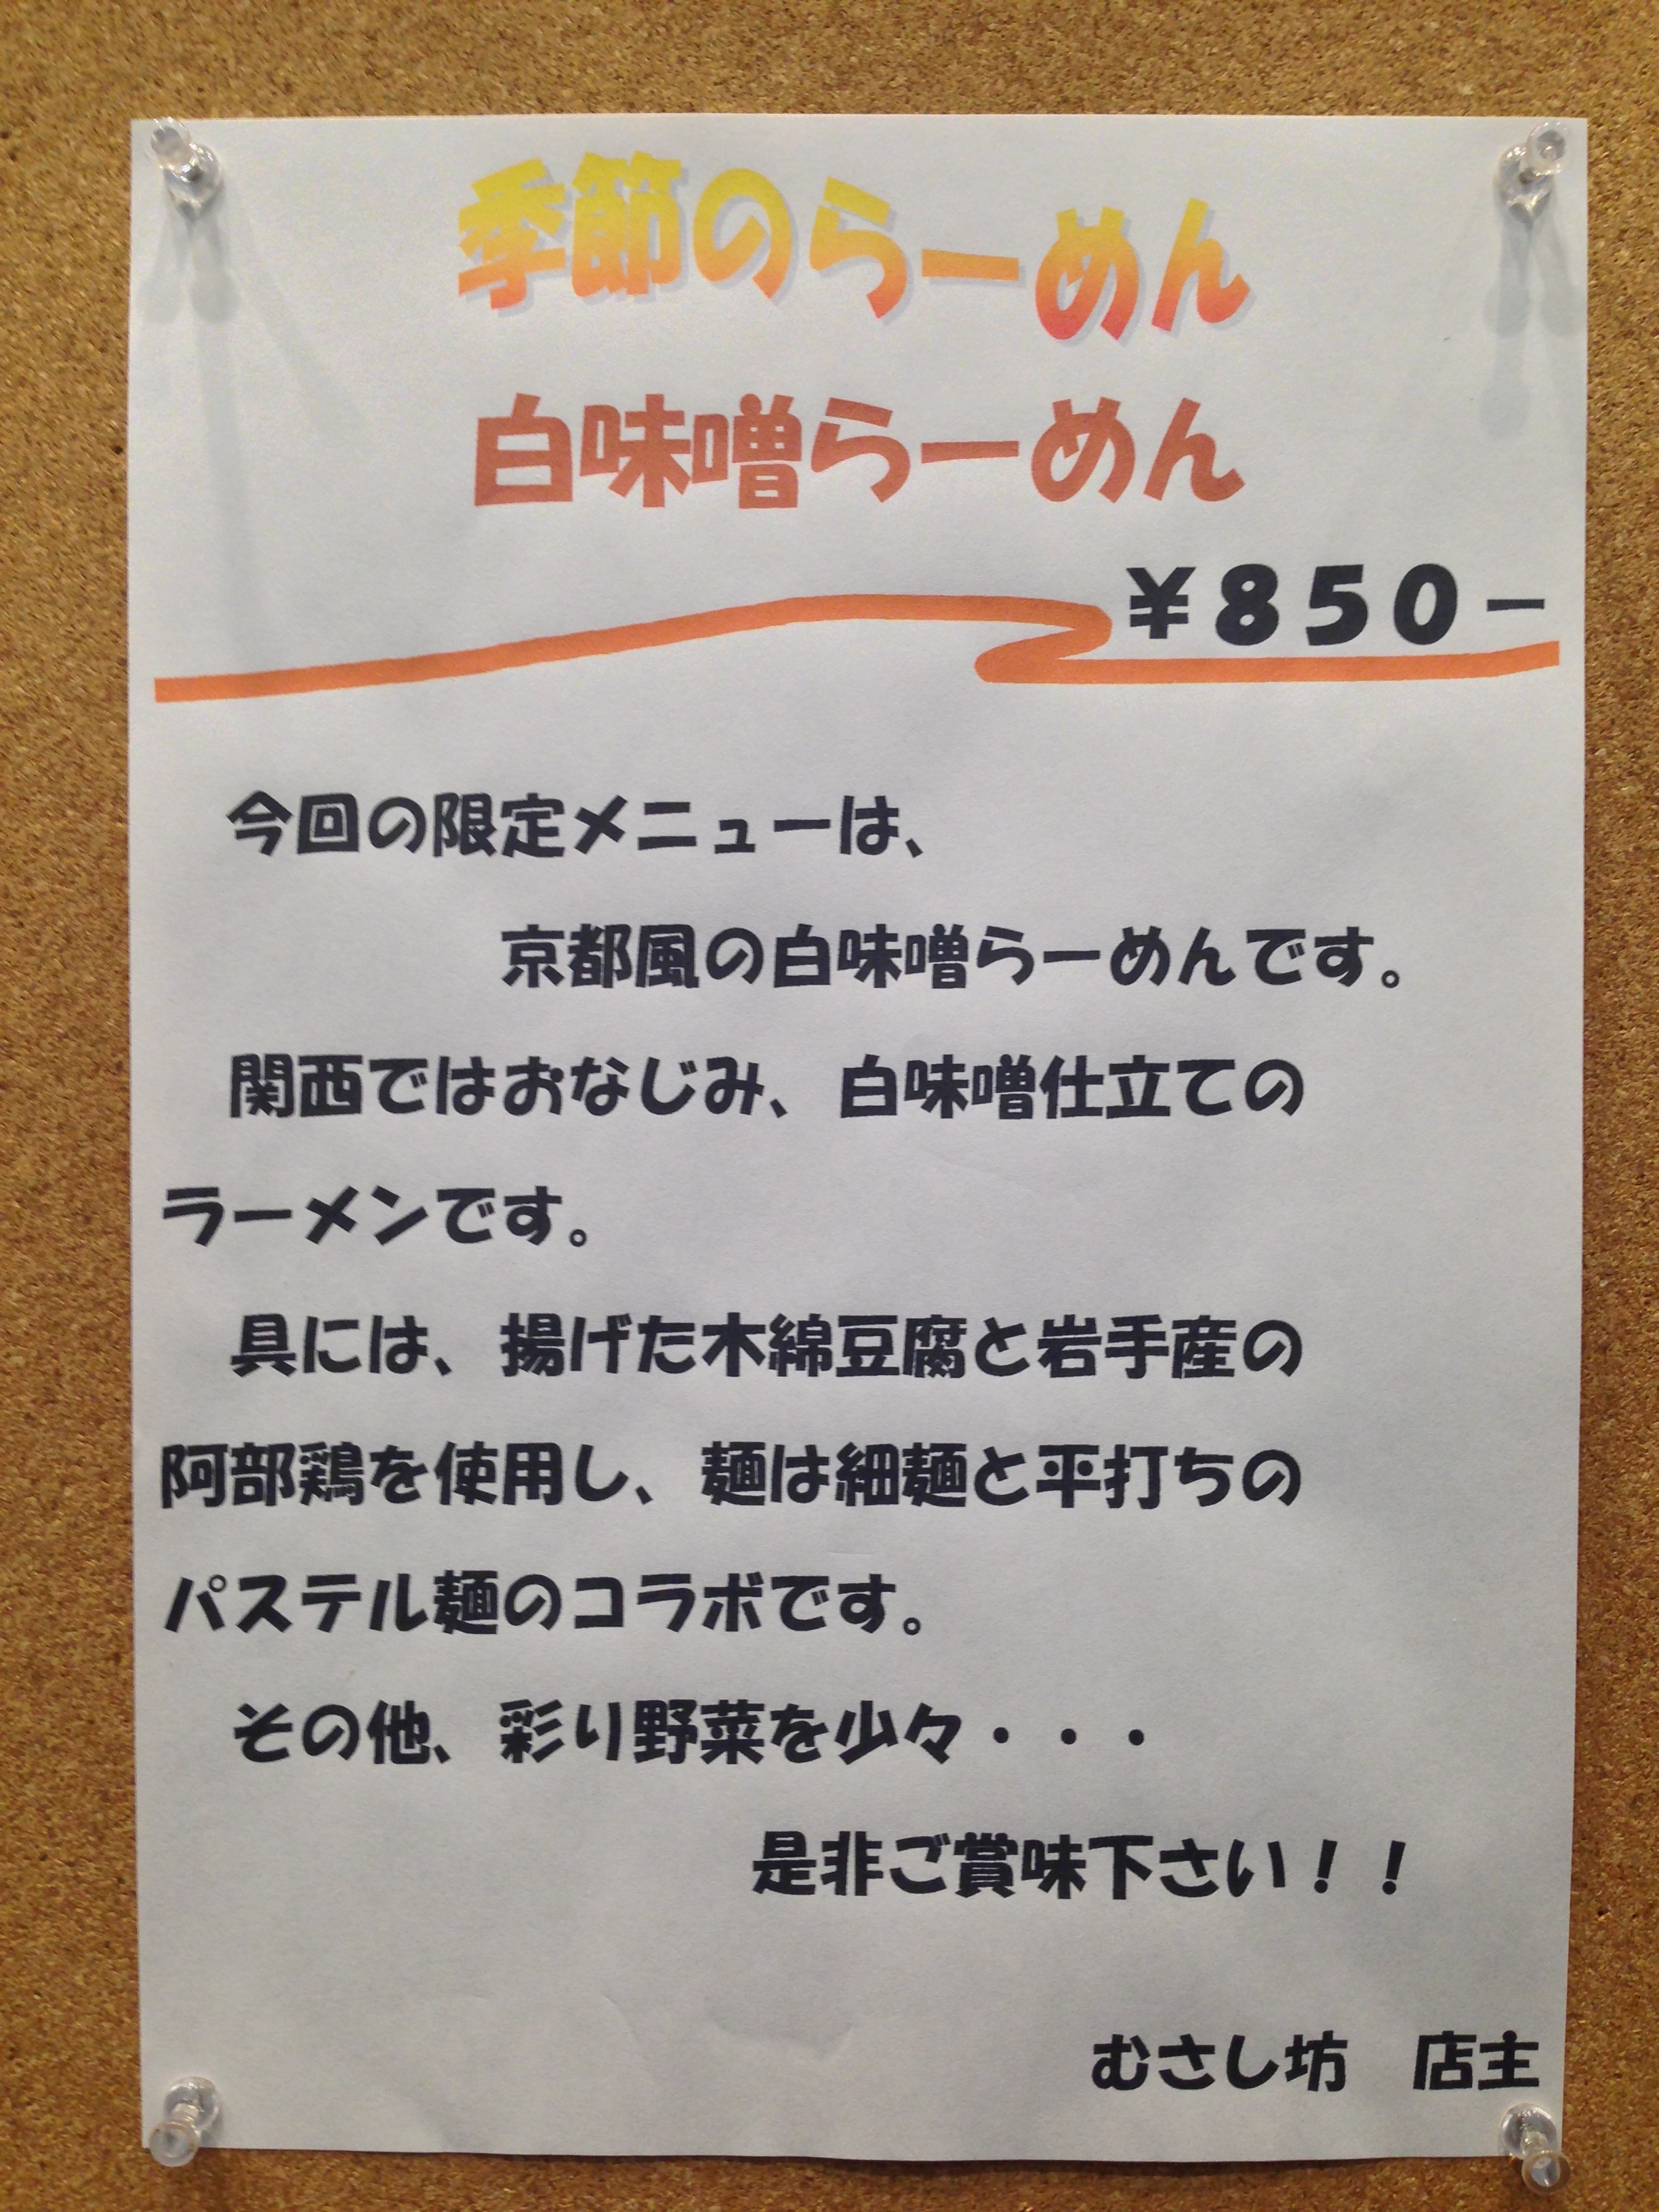 季節のらーめん
白味噌らーめん
￥８５０－
今回の限定メニューは、
京都風の白味噌らーめんです。
関西ではおなじみ、白味噌仕立ての
ラーメンです。
具には、揚げた木綿豆腐と岩手産の
阿部鶏を使用し、麺は細麺と平打ちの
パステル麺のコラボです。
その他、彩り野菜を少々・・・
是非ご賞味下さい！！
むさし坊　店主